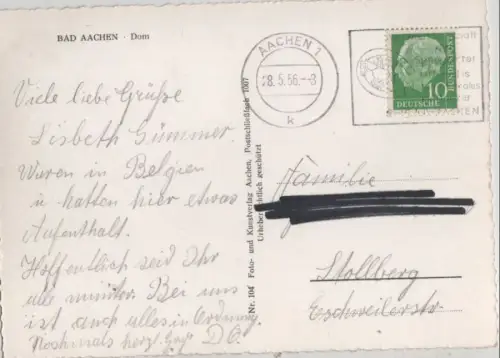 BAD AACHEN · Dom
Viele liebe Grüße
Lisbeth Gümmer.
Waren in Belgien
u. hatten hier etwas
Aufenthalt.
Hoffentlich seid Ihr
alle munter. Bei uns
ist auch alles in Ordnung
Nochmals herzl. Grß D. O.
Nr. 104 Foto- und Kunstverlag Aachen, Postschließfach 1007
Urheberrechtlich geschützt
AACHEN 1
28.5.56.-8
k
10
DEUTSCHE
BUNDESPOST
AACHEN
Familie
Stollberg
Eschweilerstr.